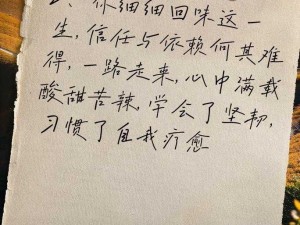 你细细回味这一
生，信任与依赖何其难
得，一路走来，心中满载
酸甜苦辣，学会了坚韧，
习惯了自我疗愈